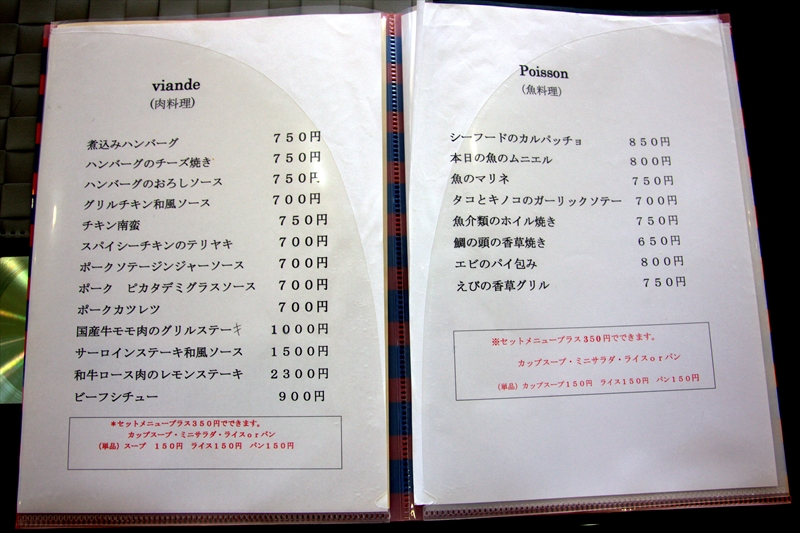 viande
(肉料理)
煮込みハンバーグ ７５０円
ハンバーグのチーズ焼き ７５０円
ハンバーグのおろしソース ７５０円
グリルチキン和風ソース ７００円
チキン南蛮 ７５０円
スパイシーチキンのテリヤキ ７００円
ポークソテージンジャーソース ７００円
ポーク　ピカタデミグラスソース ７００円
ポークカツレツ ７００円
国産牛モモ肉のグリルステーキ １０００円
サーロインステーキ和風ソース １５００円
和牛ロース肉のレモンステーキ ２３００円
ビーフシチュー ９００円
＊セットメニュープラス３５０円でできます。
カップスープ・ミニサラダ・ライスｏｒパン
（単品）スープ　１５０円　ライス１５０円　パン１５０円
Poisson
(魚料理)
シーフードのカルパッチョ ８５０円
本日の魚のムニエル ８００円
魚のマリネ ７５０円
タコとキノコのガーリックソテー ７００円
魚介類のホイル焼き ７５０円
鯛の頭の香草焼き ６５０円
エビのパイ包み ８００円
えびの香草グリル ７５０円
※セットメニュープラス350円でできます。
カップスープ・ミニサラダ・ライスｏｒパン
（単品）カップスープ１５０円　ライス１５０円　パン１５０円